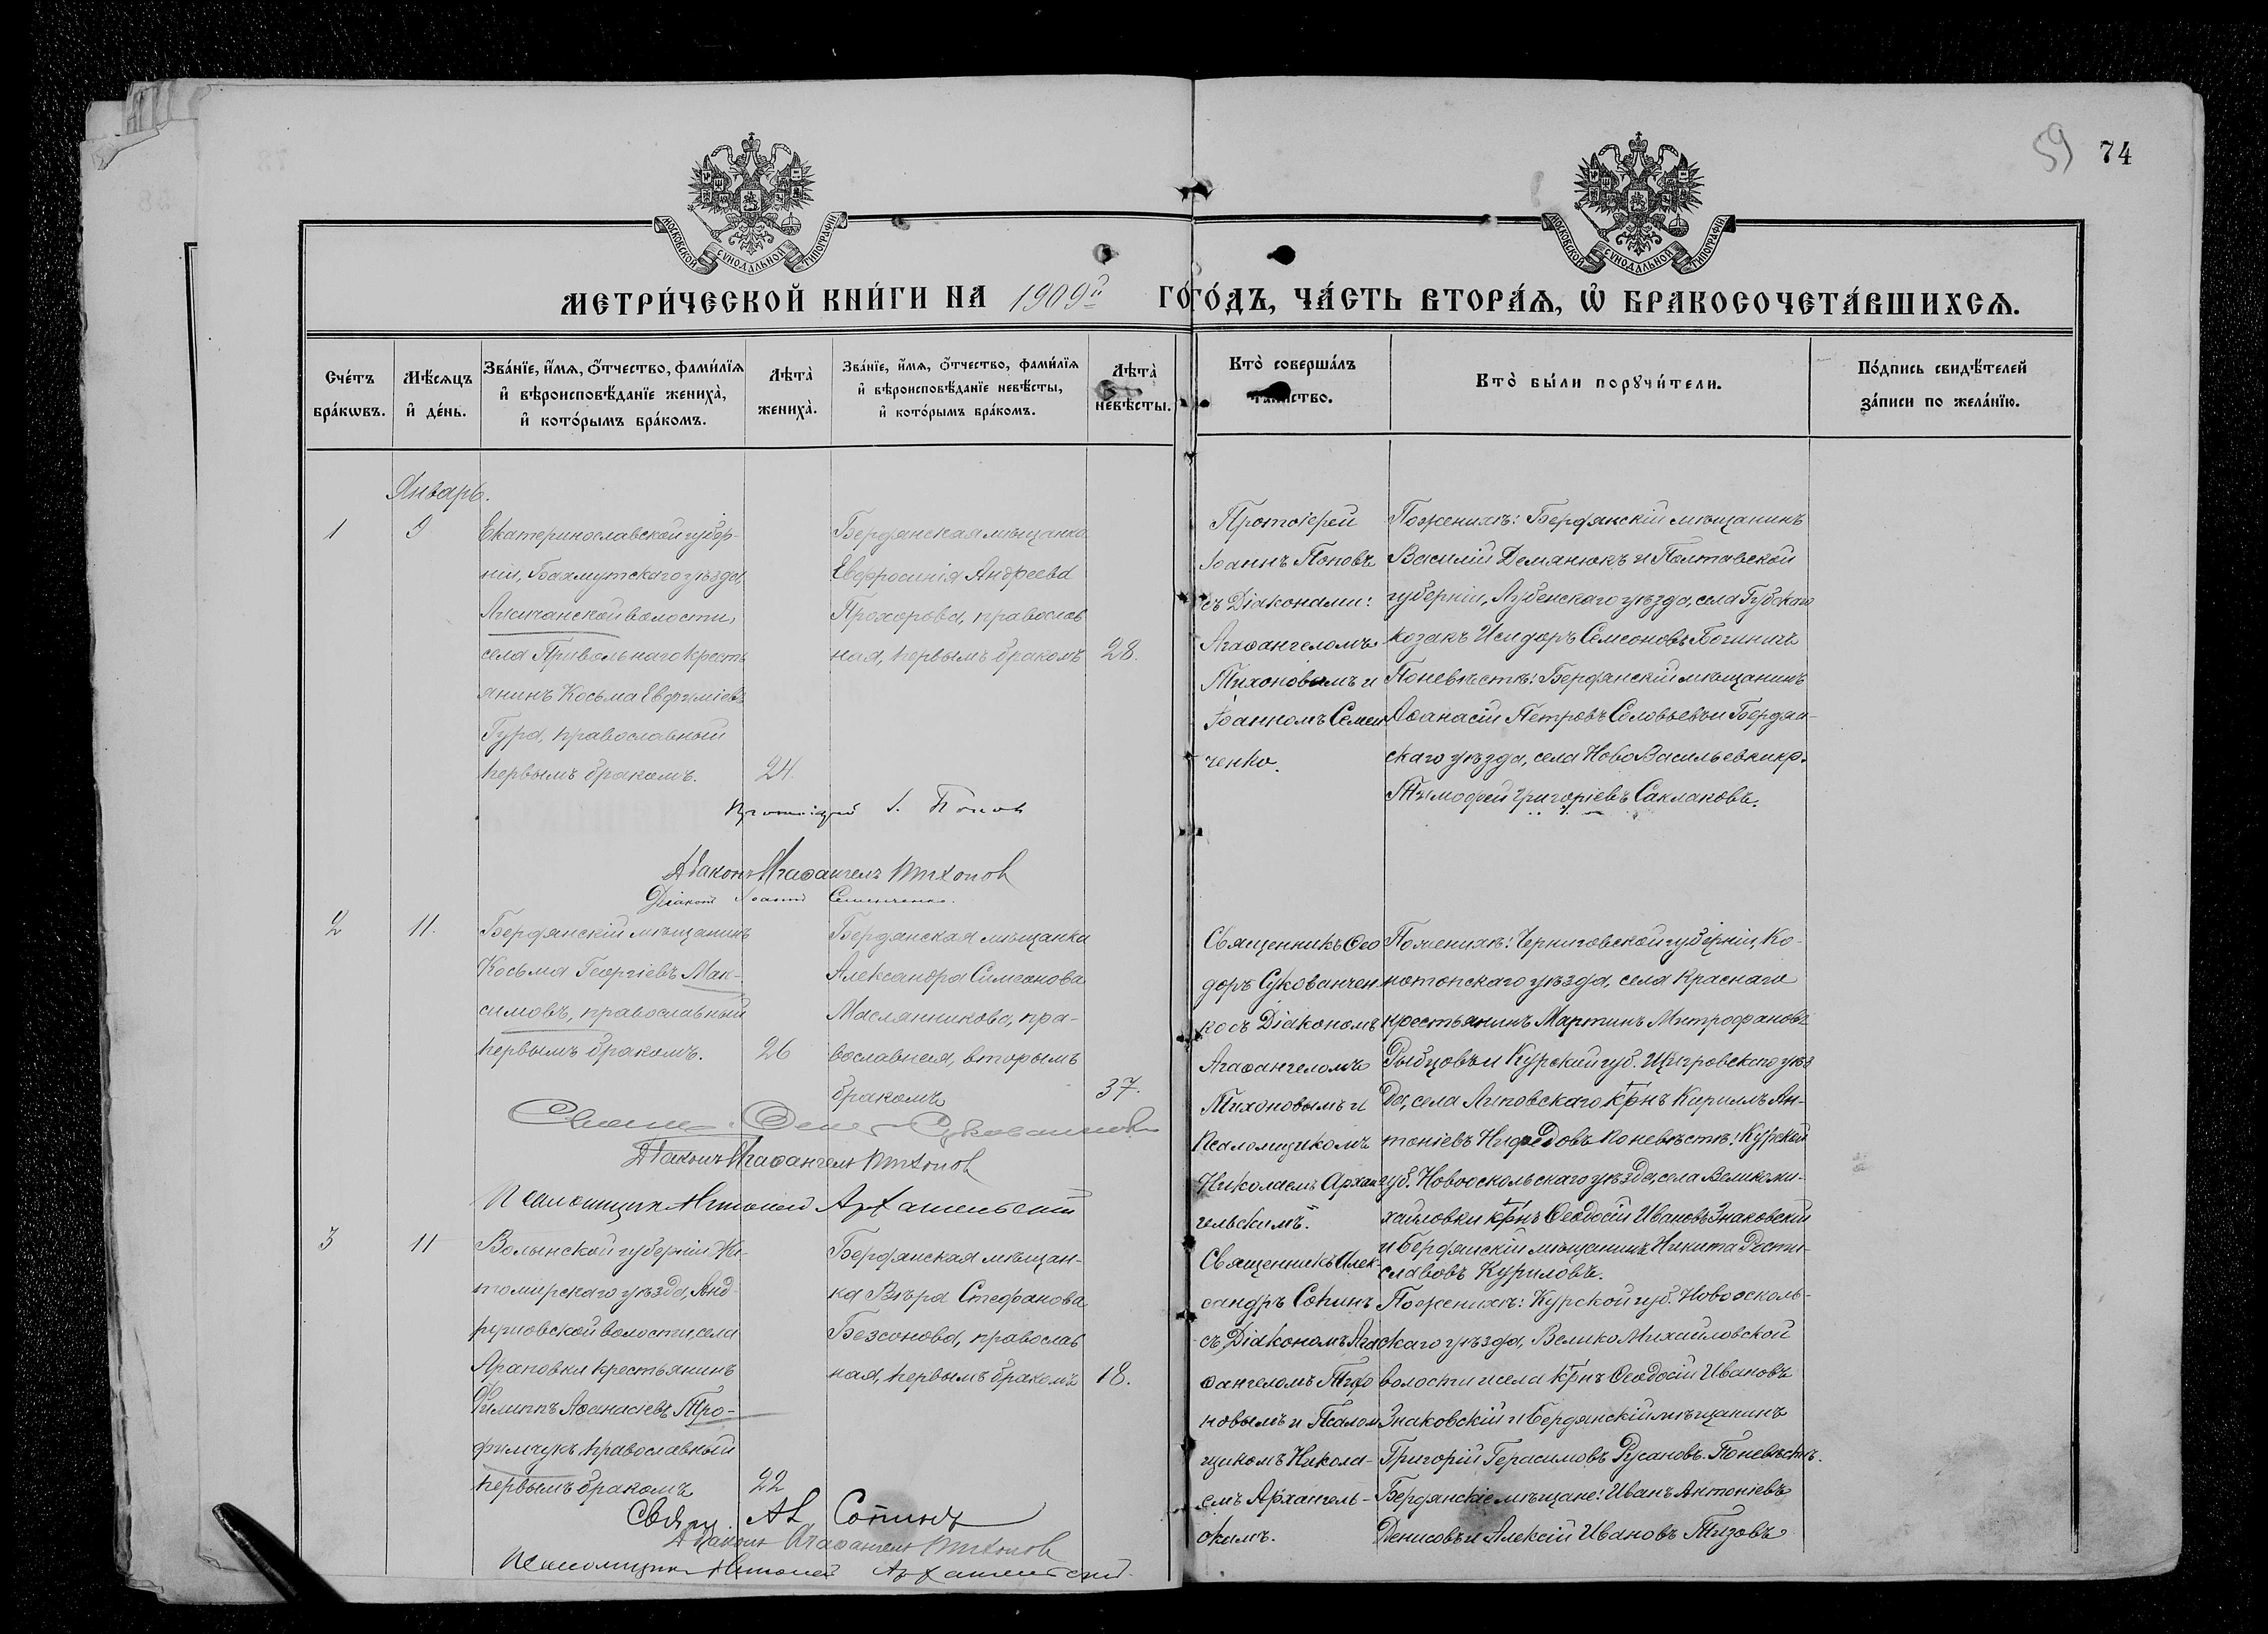 59 74
МОСКОВСКОЙ СУНОДАЛЬНОЙ ТИПОГРАФІИ
МОСКОВСКОЙ СУНОДАЛЬНОЙ ТИПОГРАФІИ
МЕТРИ́ЧЕСКОЙ КНИ́ГИ НА 1909й ГО́ДЪ, ЧА́СТЬ ВТОРА́Я, Ѡ҆ БРАКОСОЧЕТА́ВШИХСЯ.
Сче́тъ
бра́кѡвъ.
Мѣ́сяцъ
и҆ де́нь.
Зва́нїе, и҆́мя, ѻ҆́тчество, фами́лїя
и҆ вѣроисповѣ́данїе жениха̀,
и҆ кото́рымъ бра́комъ.
Лѣта̀
жениха̀.
Зва́нїе, и҆́мя, ѻ҆́тчество, фами́лїя
и҆ вѣроисповѣ́данїе невѣ́сты,
и҆ кото́рымъ бра́комъ.
Лѣта̀
невѣ́сты.
Кто̀ соверша́лъ
та́инство.
Кто̀ бы́ли порꙋчи́тели.
По́дпись свидѣ́телей
за́писи по жела́нїю.
Январь.
1
9
Екатеринославской губер-
ніи, Бахмутскаго уѣзда,
волости,
села Привольнаго кресть
янинъ Косьма Евфиміевъ
Гура, православный
первымъ бракомъ.
24.
Бердянская мѣщанка
Евфросинія Андреева
Прохорова, православ
ная, первымъ бракомъ
28.
Протоіерей
Іоаннъ Поповъ
съ Діаконами:
Агаѳангеломъ
Тихоновымъ и
Іоанномъ Семен
ченко.
По женихѣ: Бердянскій мѣщанинъ
Василій Деманюкъ и Полтавской
губерніи, Лубенскаго уѣзда, села Губскаго
козакъ Исидоръ Семеоновъ
По невѣстѣ: Бердянскій мѣщанинъ
Аѳанасій Петровъ Соловьевъ и Бердян-
скаго уѣзда, села Ново Васильевки кр.
Тимофей Григоріевъ Саклаковъ.
Протоіерей І. Попов
Діаконъ Агаѳангелъ Тихонов
Діакон Іоанн Семенченко.
2
11.
Бердянскій мѣщанинъ
Косьма Георгіевъ Мак-
симовъ, православный
первымъ бракомъ.
26
Бердянская мѣщанка
Александра Симеонова
Маслянникова, пра-
вославная, вторымъ
бракомъ
37.
Священникъ Ѳео
доръ Сукованчен
ко съ Діакономъ
Агаѳангеломъ
Тихоновымъ и
Псаломщикомъ
Николаемъ Архан
гельскимъ.
По женихѣ: Черниговской губерніи, Ко-
нотопскаго уѣзда, села Краснаго
крестьянинъ Мартинъ Митрофановъ
Рыбцовъ и Курской губ. Щигровскаго уѣз
да, села Липовскаго крнъ Кириллъ Ан-
тоніевъ По невѣстѣ: Курской
губ. Новооскольскаго уѣзда, села Великоми-
хайловки крнъ Ѳеодосій Ивановъ Знаковскій
и Бердянскій мѣщанинъ Никита Рости-
славовъ Куриловъ.
Діаконъ Агаѳангелъ Тихонов
Псаломщик Николай Архангельский
3
11
Волынской губерніи Жи-
томирскаго уѣзда,
волости, села
Араповки крестьянинъ
Филиппъ Аѳанасіевъ Тро-
фимчукъ православный
первымъ бракомъ
22
Бердянская мѣщан-
ка Вѣра Стефанова
Безсонова, православ
ная, первымъ бракомъ
18.
Священникъ Алек-
сандръ Сопинъ
съ Діакономъ Ага
ѳангеломъ Тихо
новымъ и Псалом
щикомъ Никола-
емъ Архангель-
скимъ.
По женихѣ: Курской губ. Новоосколь-
скаго уѣзда, Велико Михайловской
волости и села крнъ Ѳеодосій Ивановъ
Знаковскій и Бердянскій мѣщанинъ
Григорій Герасимовъ Русановъ. По невѣстѣ.
Бердянскіе мѣщане: Иванъ Антоніевъ
Денисовъ и Алексій Ивановъ Тизовъ
Свящ. Ал. Сопинъ
Діаконъ Агаѳангелъ Тихонов
Псаломщик Николай Архангельский